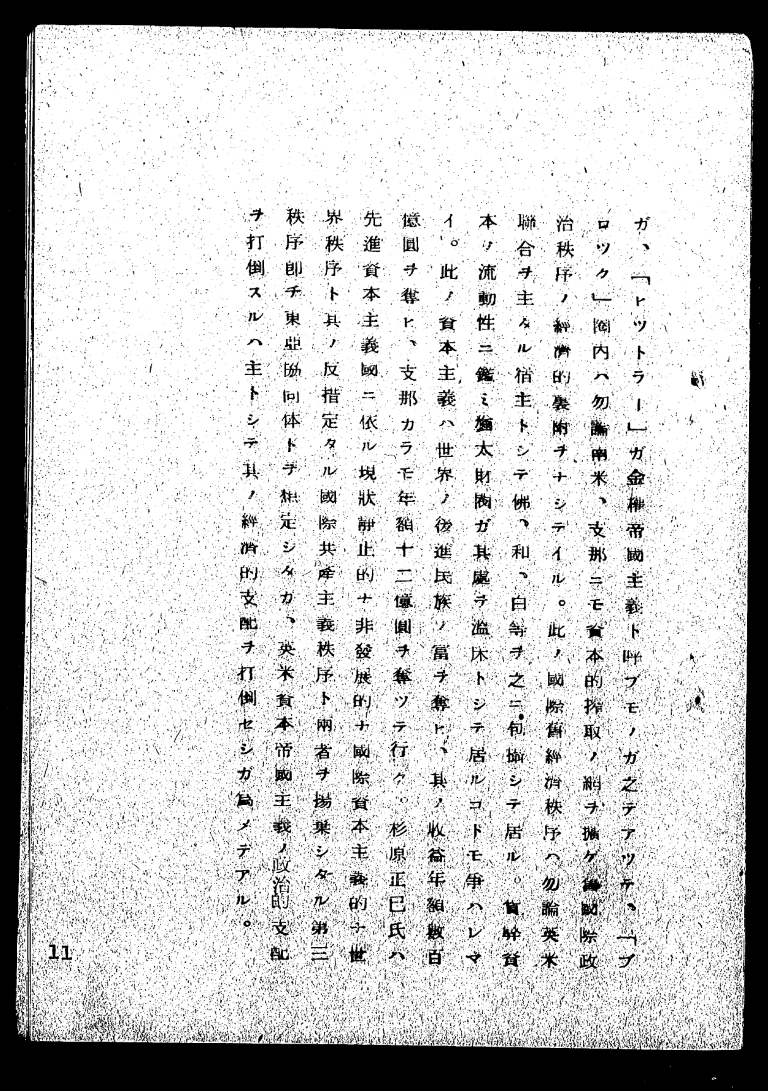 ガ、「ヒツトラー」ガ金権帝國主義ト呼ブモノガ之デアツテ、「ブ
ロツク」圏内ハ勿論南米、支那ニモ資本的搾取ノ網ヲ擴ゲ舊國際政
治秩序ノ經濟的裏附ヲナシテイル。此ノ國際舊經濟秩序ハ勿論英米
聯合ヲ主タル宿主トシテ佛、和、白等ヲ之ニ包攝シテ居ル。貨幣資
本ノ流動性ニ鑑ミ猶太財閥ガ其處ヲ温床トシテ居ルコトモ爭ハレマ
イ。此ノ資本主義ハ世界ノ後進民族ノ富ヲ奪ヒ、其ノ收益年額數百
億圓ヲ奪ヒ、支那カラモ年額十二億圓ヲ奪ツテ行ク。杉原正巳氏ハ
先進資本主義國ニ依ル現狀靜止的ナ非發展的ナ國際資本主義的ナ世
界秩序ト其ノ反措定タル國際共產主義秩序ト兩者ヲ揚棄シタル第三
秩序卽チ東亞協同体トヲ想定シタガ、英米資本帝國主義ノ政治的支配
ヲ打倒スルハ主トシテ其ノ經濟的支配ヲ打倒セシガ爲メデアル。
11